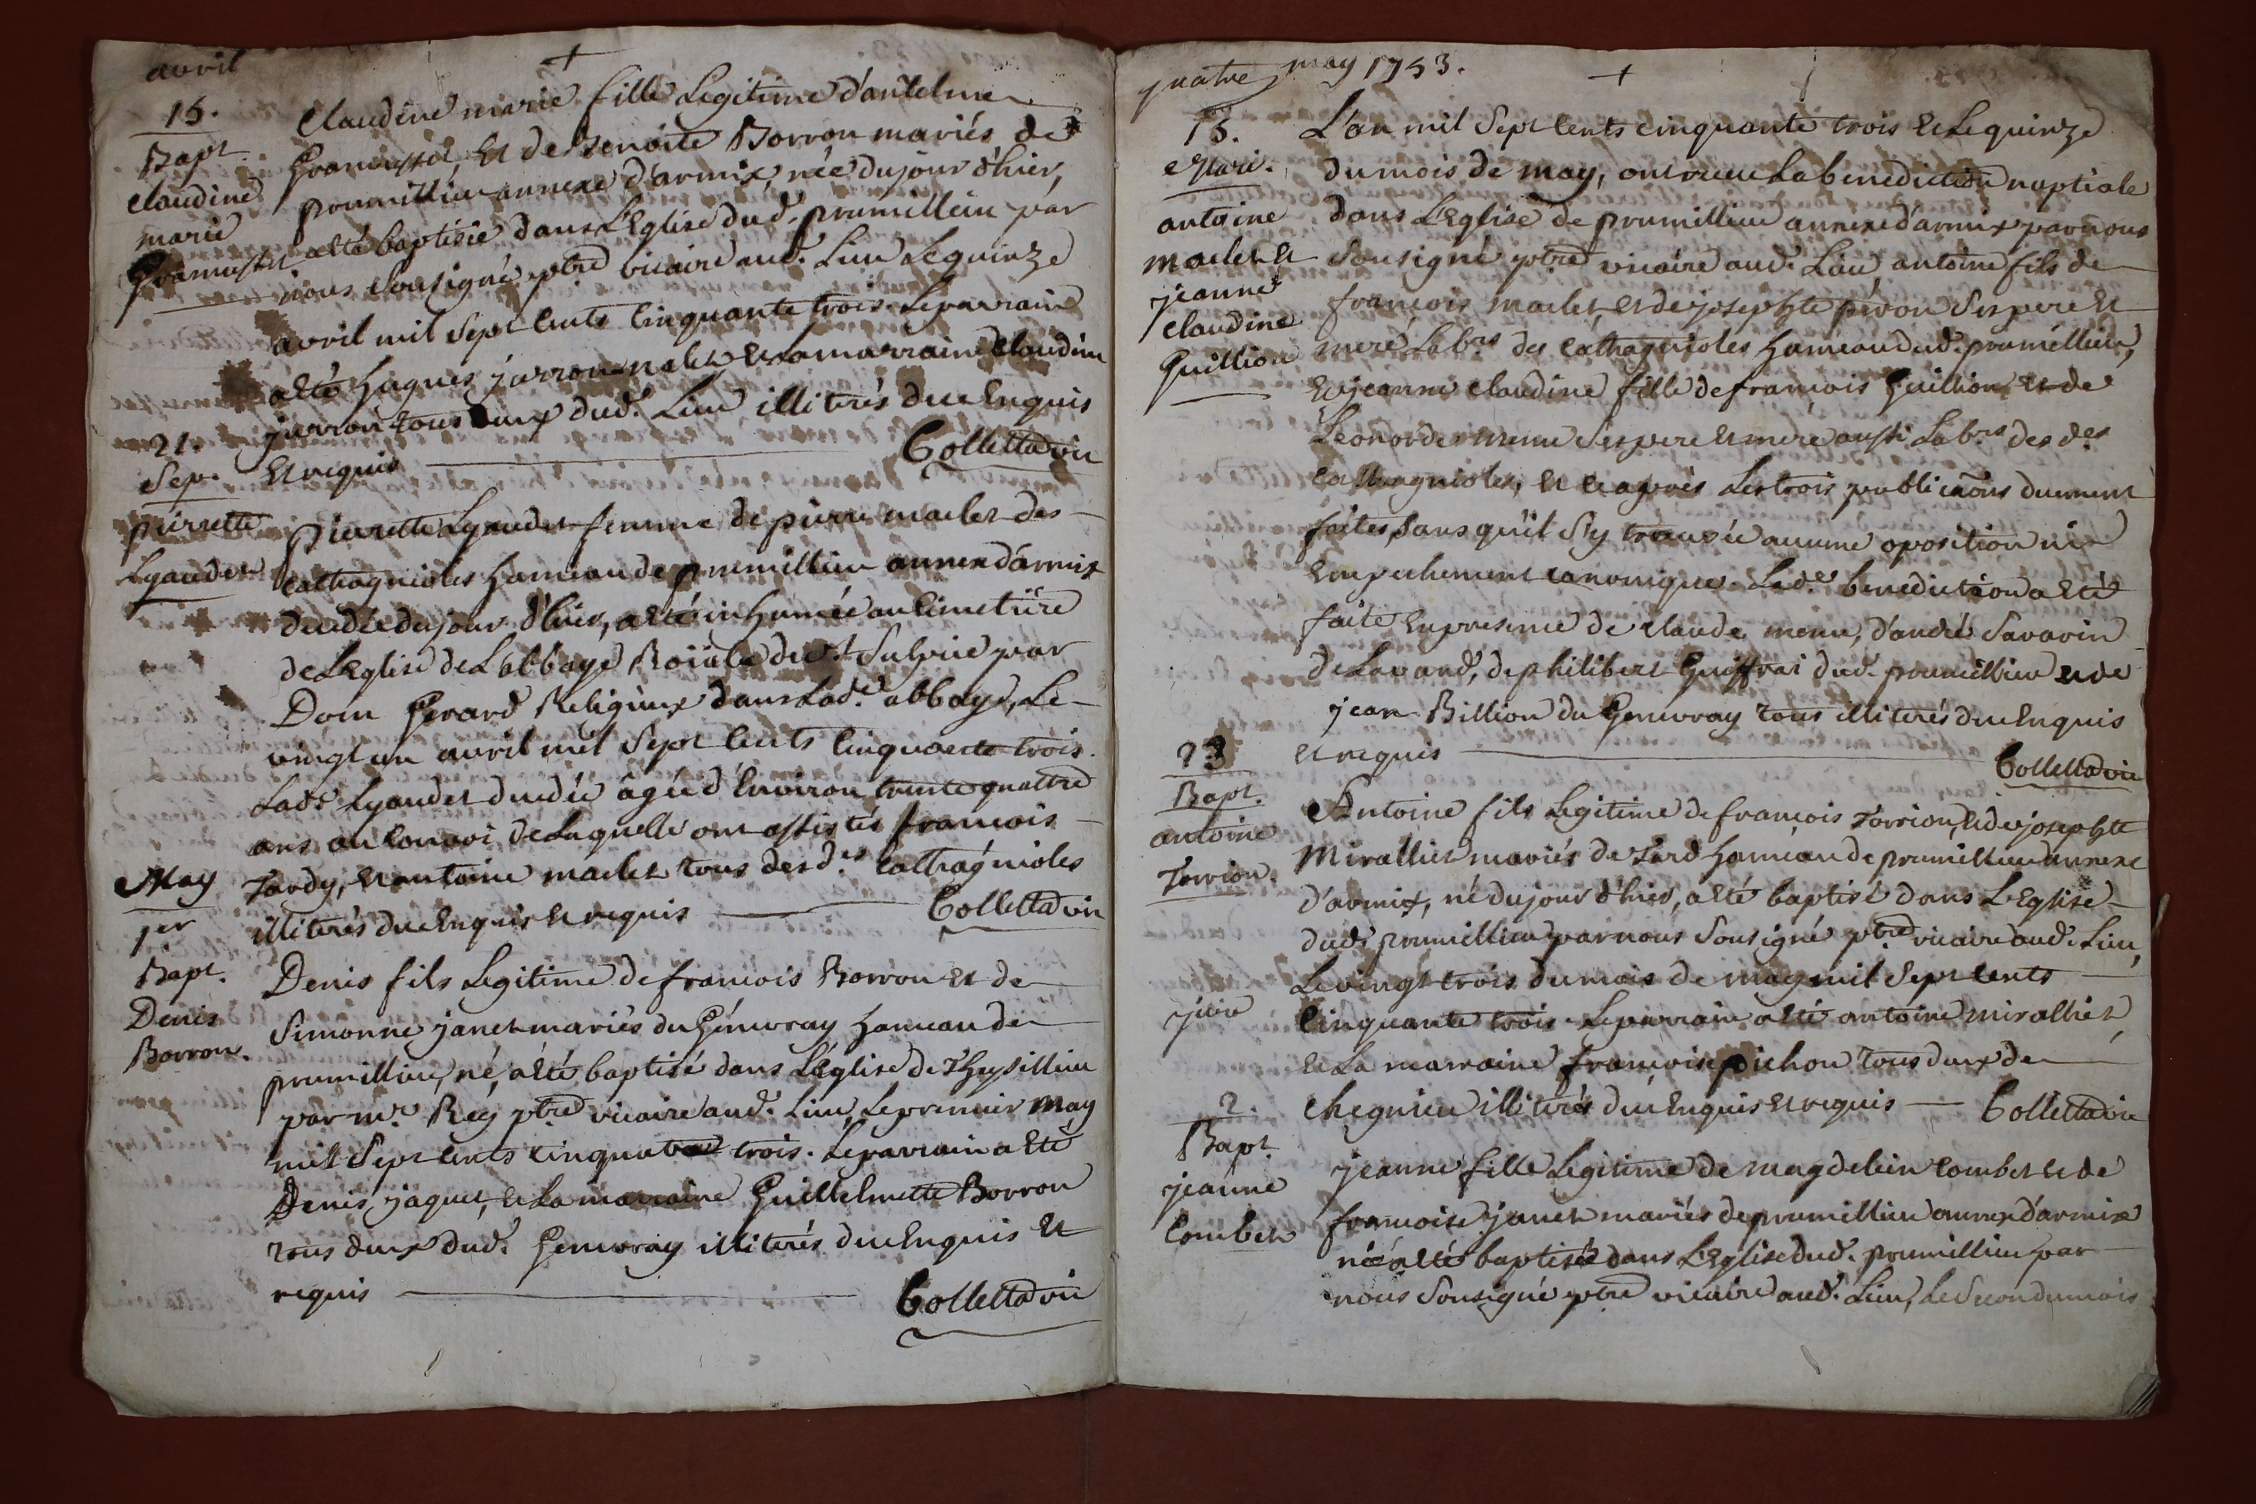 avril
15.
Bapt.
claudine
marie
Gramusset
Claudine marie fille Legitime d'antelme
Gramusset, et de benoite Borron mariés de
prumillieu annexe d'armix, née du jour d'hier,
a eté baptisée dans L'Eglise dud. prumillieu par
nous sousigné ptre vicaire aud. Lieu le quinze
avril mil sept cents cinquante trois. Le parrain
a eté hugues jurron et la marraine claudine
jurron tous deux dud. Lieu illiterés due Enquis
Et requis Colletta vic
21.
Sep.
pierrette
Lyaudet
pierrette Lyaudet femme de pierre maclet des
cathagnioles hameau de prumillieu annexe d'armix
decedée du jour d'hier, a eté inhumée au cimetiére
de L'Eglise de L'abbaye Roïale de St Sulpice par
Dom Gerard Religieux dans lad.e abbaye, Le
vingt un avril mil sept cents cinquante trois.
Lade Lyaudet decedée âgée d'Environ trente quattre
ans au convoi de Laquelle ont assistés francois
Tardy, et antoine maclet tous des d.es cathagnioles
illiterés due Enquis et requis Colletta vic
May
1er
Bapt.
Denis
Borron.
Denis fils Legitime de francois Borron et de
Simonne janet mariés du Génevray hameau de
prumillieu, né, a eté baptisé dans L'Eglise de Thesillieu
par mr. Rey ptre vicaire aud. Lieu, Le premier May
mil sept cents cinquante trois. Le parrain a eté
Denis jaquet, et La marraine Guillelmette Borron
tous deux dud. Genevray illiterés due Enquis et
requis Colletta vic
quatre may 1753.
15.
Mari.
antoine
maclet et
jeanne
claudine
Guillion
L'an mil sept cents cinquante trois et Le quinze
du mois de may, ont reçu La benediction nuptiale
dans L'Eglise de prumillieu annexe d'armix par nous
sousigné ptre vicaire aud. Lieu antoine fils de
françois maclet, et de josephte péron ses pere et
mere Labrs des cathagnioles hameau dud. prumillieu,
Et jeanne claudine fille de francois Guillion et de
Leonorde menu ses pere et mere aussi Labrs des des
cathagnioles, et ce après Les trois publicaõns duement
faites, sans qu'il s'y trouvée aucune oposition ni
Empechement canonique. Lad.e benediction a eté
faite En presence de claude menu, d'andré Savarin
de Lavand, de philibert Guiffrai dud. prumillieu et de
jean Billion du Genevray tous illiterés due Enquis
et requis Colletta vic
23
Bapt.
antoine
Torrion.
Antoine fils Legitime de francois Torrion, et de josephte
Miralliet mariés de Tard hameau de prumillieu annexe
d'armix, né du jour d'hier, a eté baptisé dans L'Eglise
dud. prumillieu par nous sousigné ptre vicaire aud. Lieu,
Le vingt trois du mois de may mil sept cents
cinquante trois. Le parrain a eté antoine miralliet
et La marraine francoise pichon tous deux de
chegnieu illiterés due Enquis et requis Colletta vic
juin
2.
Bapt.
jeanne
Combet
jeanne fille Legitime de magdelein combet et de
francoise janet mariés de prumillieu annexe d'armix
née a eté baptisée dans L'Eglise dud. prumillieu par
nous sousigné ptre vicaire aud. Lieu, Le second du mois